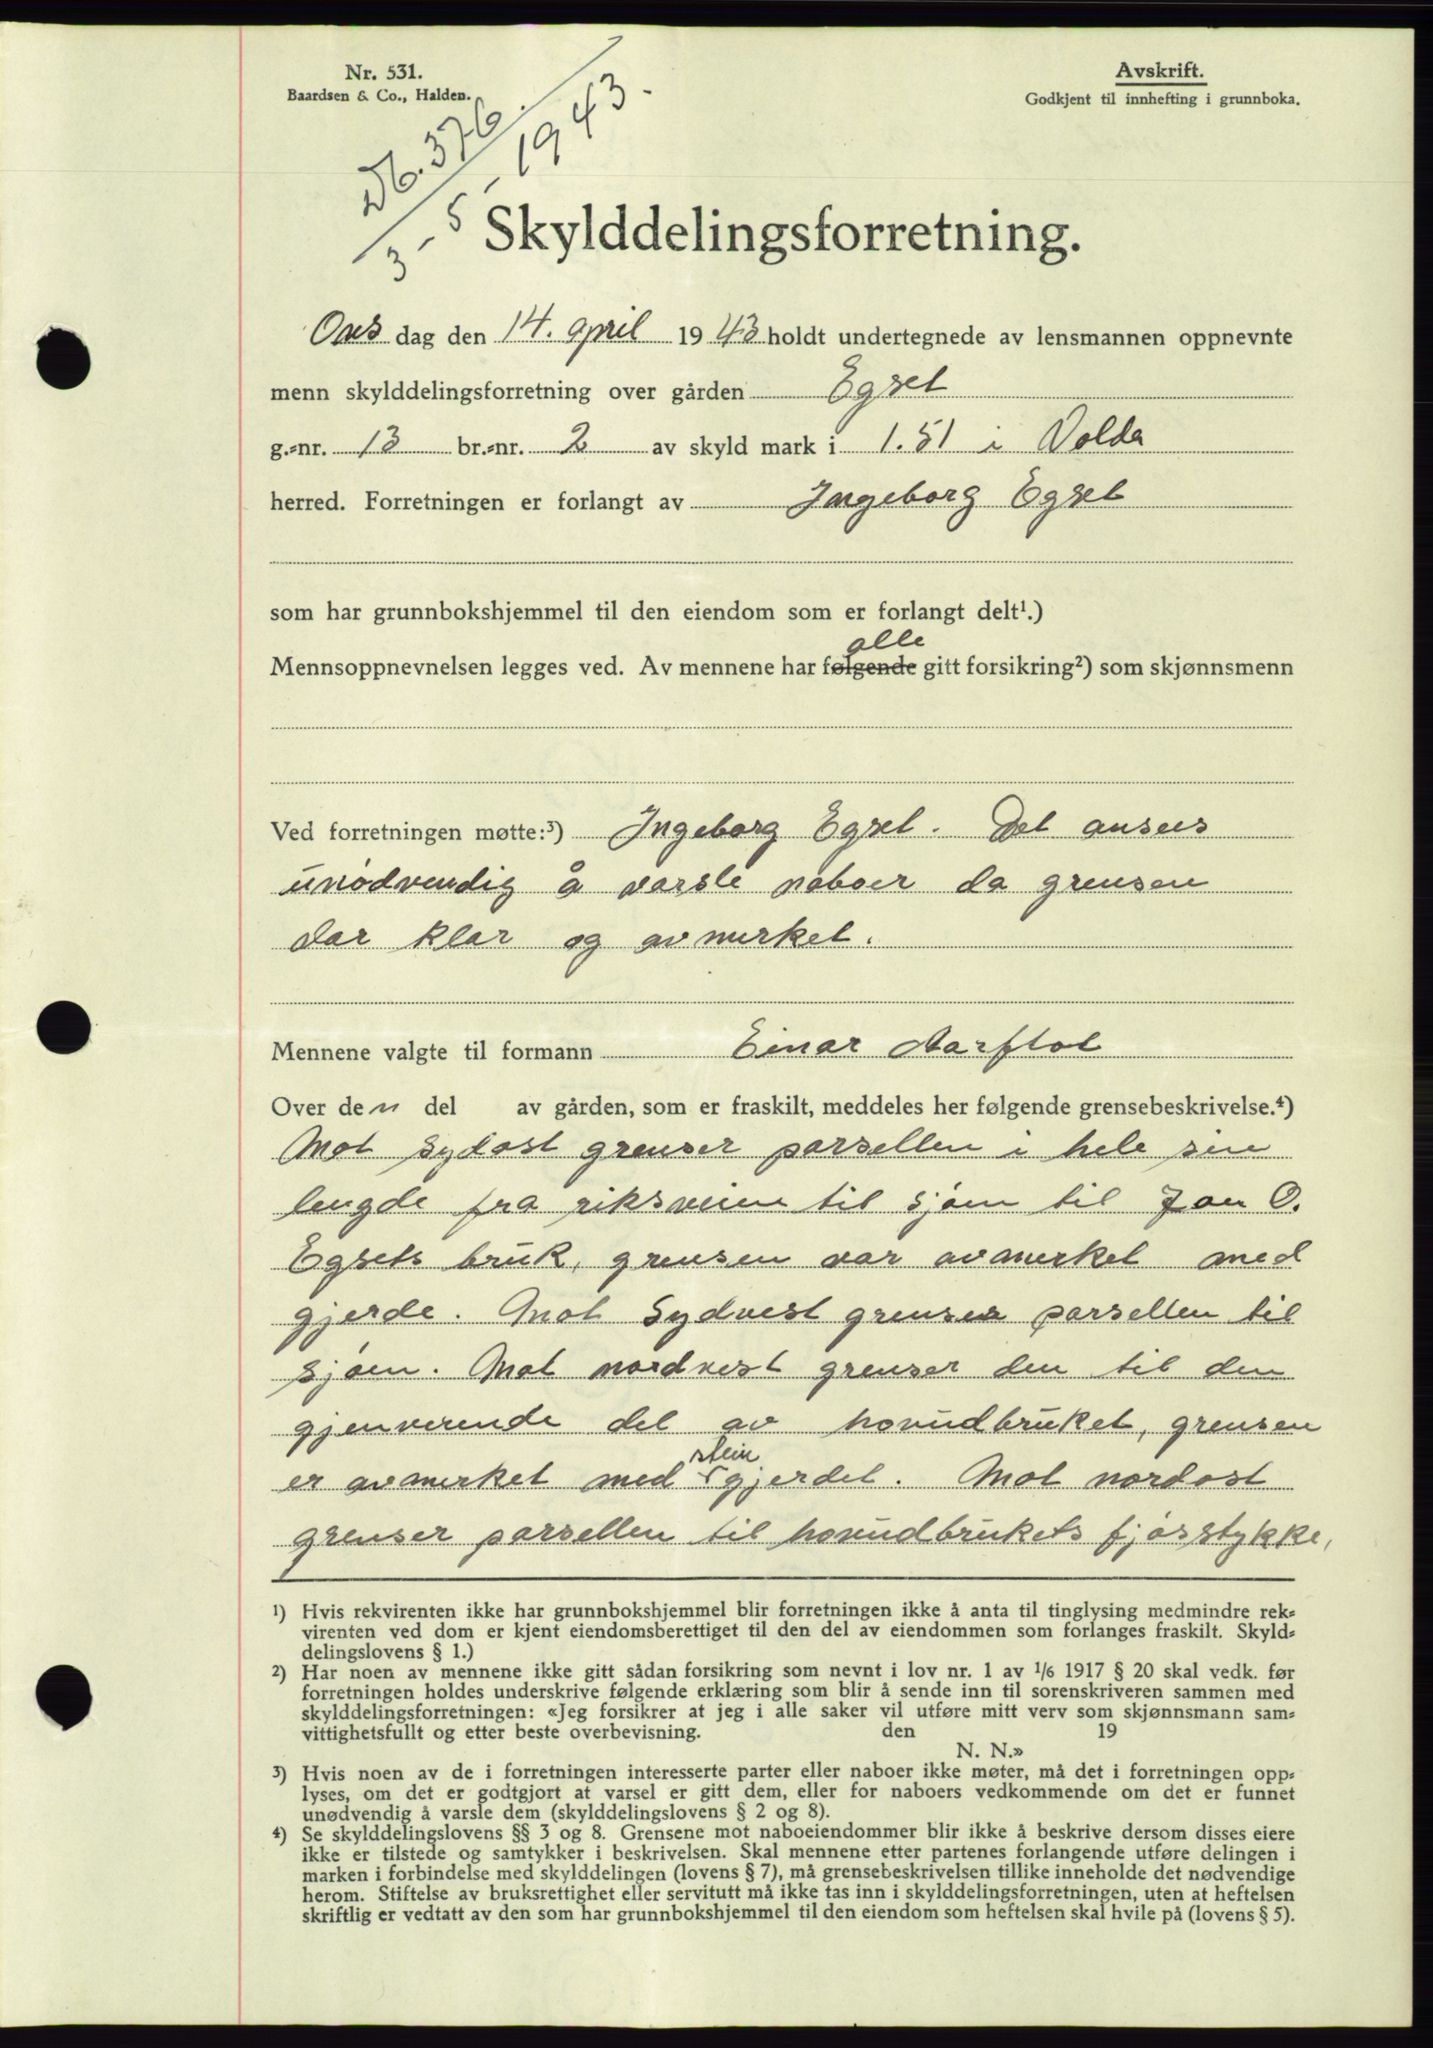 Nr. 531.
Baardsen & Co., Halden.
Avskrift.
Godkjent til innhefting i grunnboka.
Db. 376.
3 - 5 - 1943.
Skylddelingsforretning.
Ons dag den 14. april 1943 holdt undertegnede av lensmannen oppnevnte
menn skylddelingsforretning over gården Egset
g.=nr. 13 br.=nr. 2 av skyld mark i 1.51 i Volda
herred. Forretningen er forlangt av Ingeborg Egset
som har grunnbokshjemmel til den eiendom som er forlangt delt¹.)
alle
Mennsoppnevnelsen legges ved. Av mennene har følgende gitt forsikring²) som skjønnsmenn
Ved forretningen møtte:³) Ingeborg Egset. Det ansees
unødvendig å varsle naboer da grensen
var klar og avmerket.
Mennene valgte til formann Einar Aarflot
Over den del av gården, som er fraskilt, meddeles her følgende grensebeskrivelse.⁴)
Mot sydøst grenser parsellen i hele sin
lengde fra riksveien til sjøen til Jon O.
Egsets bruk, grensen var avmerket med
gjerde. Mot Sydvest grenser parsellen til
sjøen. Mot nordvest grenser den til den
gjenverende del av hovudbruket, grensen
stein
er avmerket med gjerdet. Mot nordøst
grenser parsellen til hovudbrukets fjøsstykke,
¹) Hvis rekvirenten ikke har grunnbokshjemmel blir forretningen ikke å anta til tinglysing medmindre rek=
virenten ved dom er kjent eiendomsberettiget til den del av eiendommen som forlanges fraskilt. Skyld=
delingslovens § 1.)
²) Har noen av mennene ikke gitt sådan forsikring som nevnt i lov nr. 1 av 1/6 1917 § 20 skal vedk. før
forretningen holdes underskrive følgende erklæring som blir å sende inn til sorenskriveren sammen med
skylddelingsforretningen: «Jeg forsikrer at jeg i alle saker vil utføre mitt verv som skjønnsmann sam=
vittighetsfullt og etter beste overbevisning. den 19
N. N.»
³) Hvis noen av de i forretningen interesserte parter eller naboer ikke møter, må det i forretningen opp=
lyses, om det er godtgjort at varsel er gitt dem, eller for naboers vedkommende om det er funnet
unødvendig å varsle dem (skylddelingslovens § 2 og 8).
⁴) Se skylddelingslovens §§ 3 og 8. Grensene mot naboeiendommer blir ikke å beskrive dersom disses eiere
ikke er tilstede og samtykker i beskrivelsen. Skal mennene etter partenes forlangende utføre delingen i
marken i forbindelse med skylddelingen (lovens § 7), må grensebeskrivelsen tillike inneholde det nødvendige
herom. Stiftelse av bruksrettighet eller servitutt må ikke tas inn i skylddelingsforretningen, uten at heftelsen
skriftlig er vedtatt av den som har grunnbokshjemmel til den eiendom som heftelsen skal hvile på (lovens § 5).